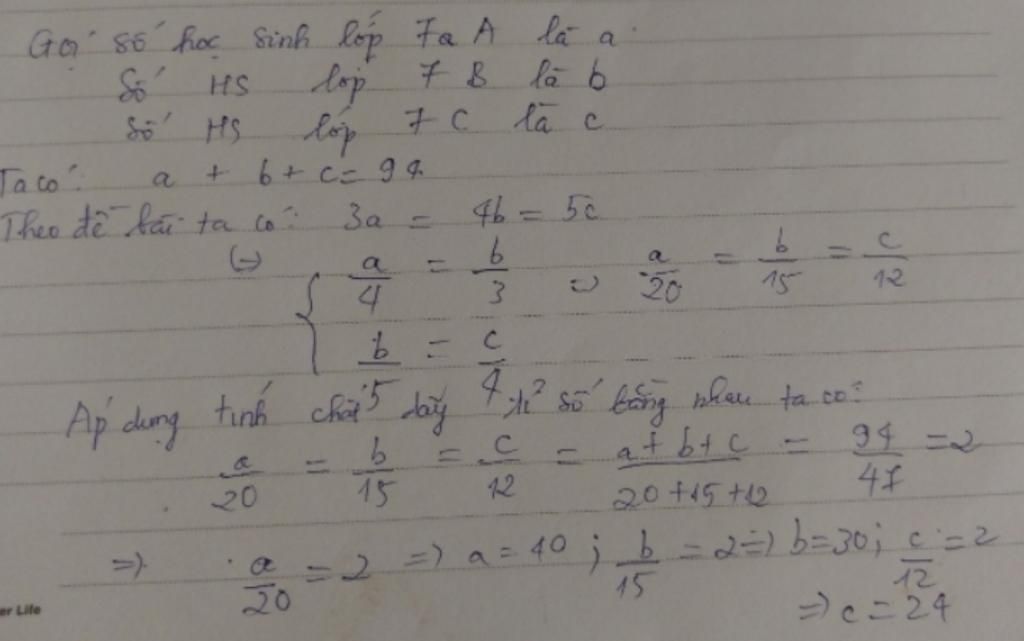 Gọi số học sinh lớp 7a A là a.
Số HS lớp 7 B là b
Số HS lớp 7 C là c
Ta có: a + b + c = 94
Theo đề bài ta có: 3a = 4b = 5c
(=) { a/4 = b/3 => a/20 = b/15 = c/12
b/5 = c/4
Áp dụng tính chất dãy tỉ số bằng nhau ta có:
a/20 = b/15 = c/12 = a + b + c / 20 + 15 + 12 = 94/47 = 2
=> a/20 = 2 => a = 40 ; b/15 = 2 => b = 30 ; c/12 = 2
=> c = 24
er Life